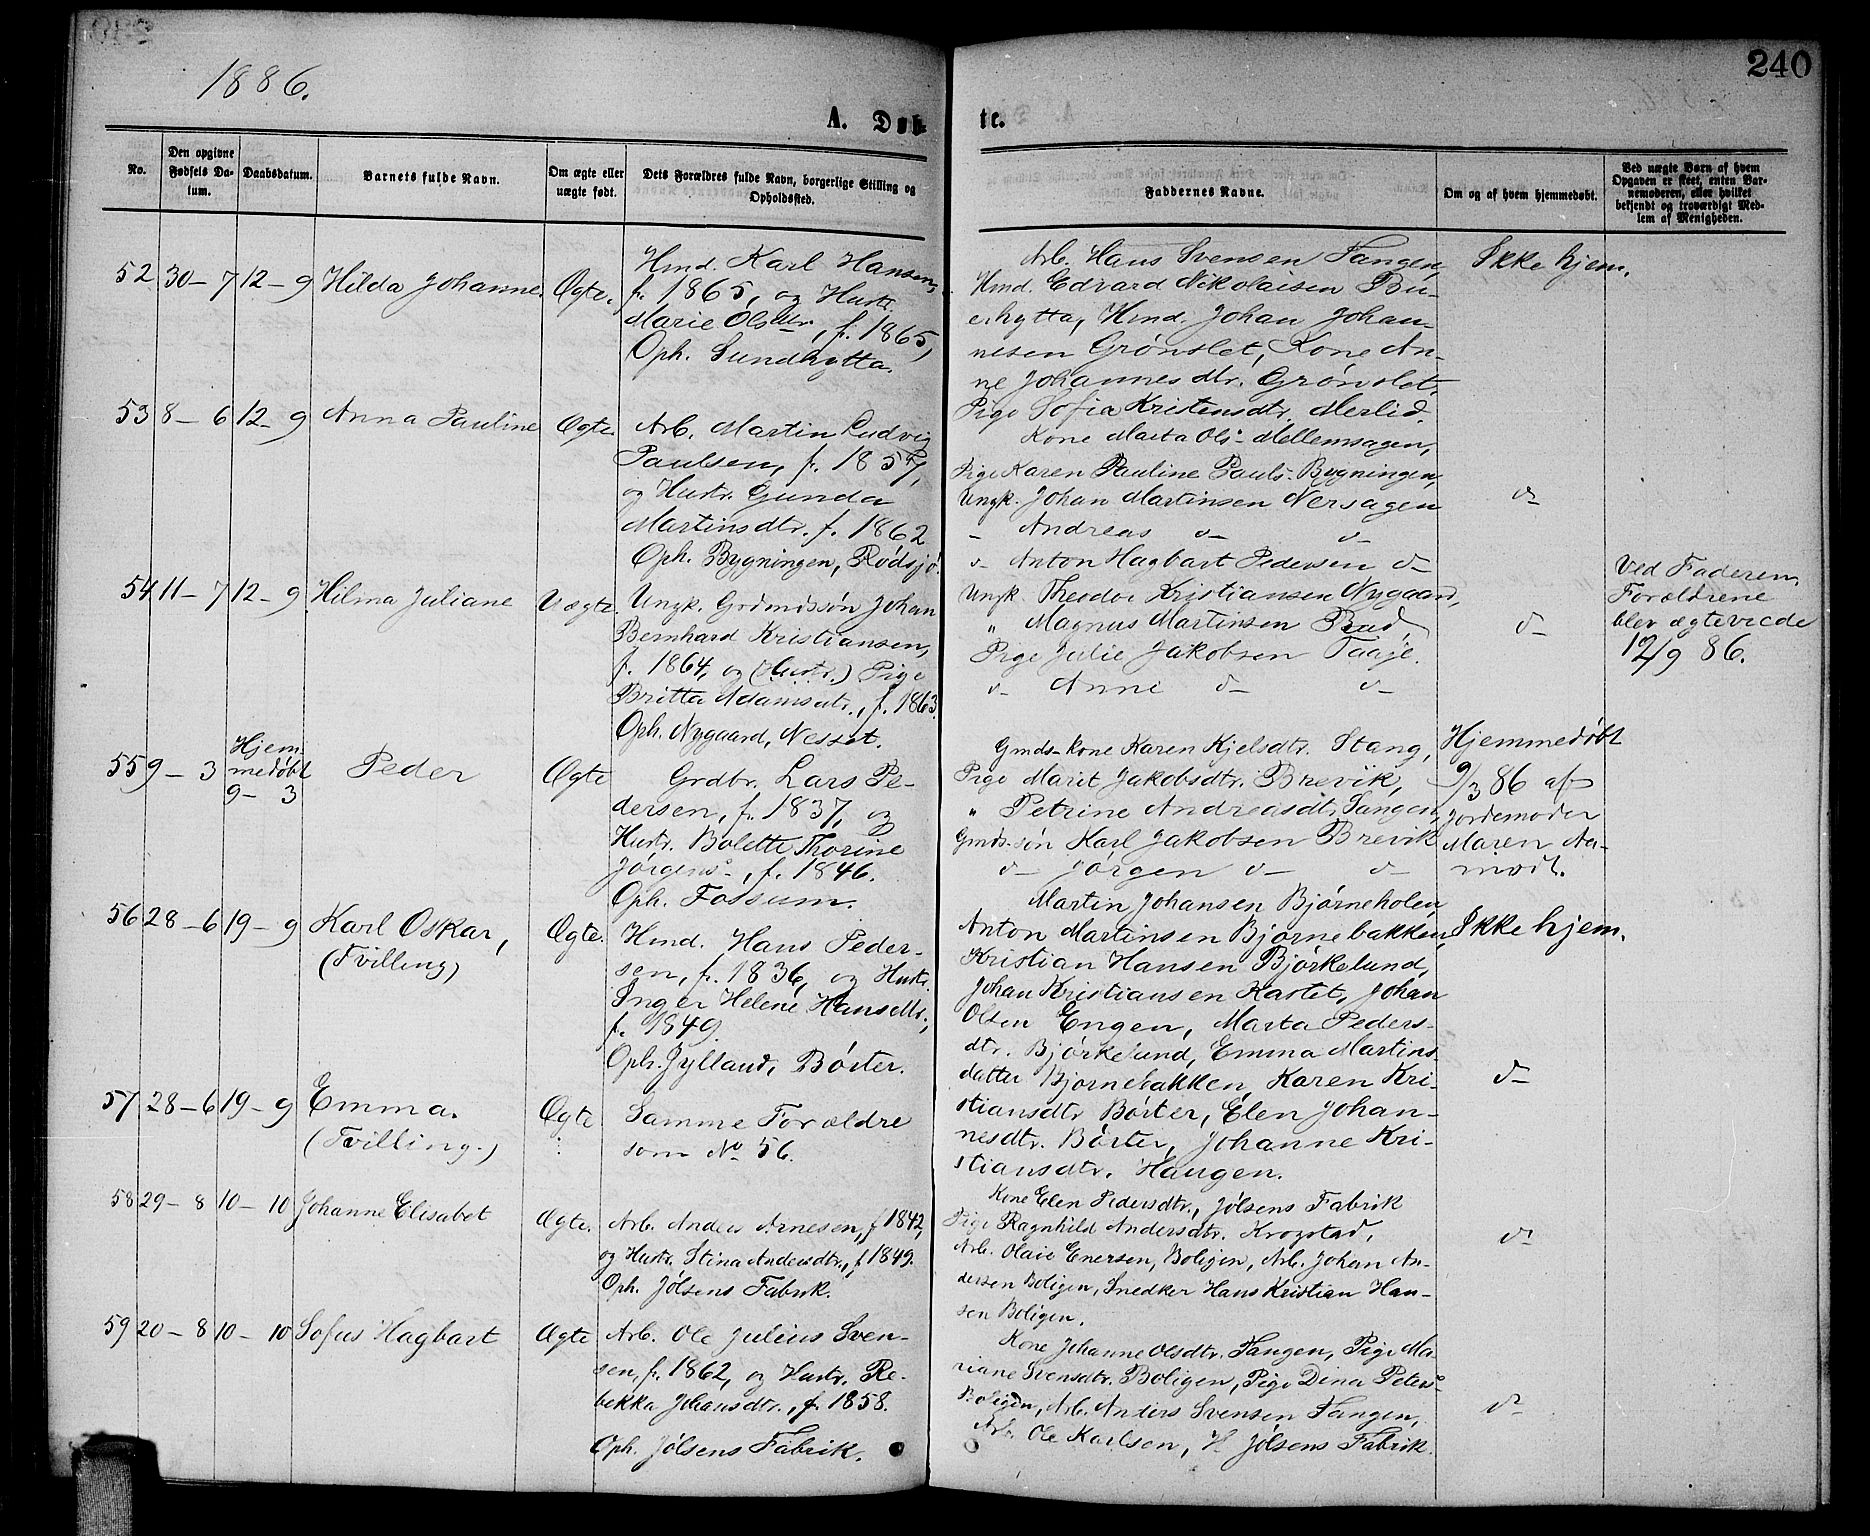 240
1886.
A. Døb-
te.
No.
Den opgivne Fødsels Da-tum.
Daabsdatum.
Barnets fulde Navn.
Om ægte eller uægte født.
Dets Forældres fulde Navn, borgerlige Stilling og Opholdssted.
Faddernes Navne.
Om og af hvem hjemmedøbt.
Ved uægte Børn af hvem Opgaven er skeet, enten Bar-nemoderen, eller hvilket bekjendt og troværdigt Med-lem af Menigheden.
52 30 - 7 12 - 9 Hilda Johanne. Ægte.
Hmd. Karl Hansen,
f. 1865, og Hustr.
Marie Olsdtr., f. 1865,
Oph. Sundhytta.
Arb. Hans Svensen Tangen,
Hmd. Edvard Nikolaisen Bu-
erhytta, Hmd. Johan Johan-
nesen Grønslet, Kone An-
ne Johannesdtr. Grønslet,
Pige Sofia Kristensdtr. Merlid.
Ikke hjem.
53 8 - 6 12 - 9 Anna Pauline Ægte
Arb. Martin Ludvig
Paulsen, f. 1857,
og Hustr. Gunda
Martinsdtr. f. 1862
Oph. Bygningen, Rødsjø.
Kone Marta Ols- Mellemsagen,
Pige Karen Pauline Pauls- Bygningen,
Ungk. Johan Martinsen Nersagen
- Andreas d- d-
d- Anton Hagbart Pedersen d-
d-
54 11 - 7 12 - 9 Hilma Juliane Uægte.
Ungk. Grdmdssøn Johan
Bernhard Kristiansen,
f. 1864, og (Hustr.) Pige
Britta Adamsdtr., f. 1863.
Oph. Nygaard, Nesset.
Ungk. Theodor Kristiansen Nygaard,
" Magnus Martinsen Brud,
Pige Julie Jakobsen Taaje.
d- Anne d- d-
d-
Ved Faderen,
Forældrene
blev ægteviede
12/9 86.
55 9 - 3 Hjem-
medøbt
9 - 3
Peder Ægte
Grdbr. Lars Pe-
dersen, f. 1837, og
Hustr. Bolette Thorine
Jørgens-, f. 1846.
Oph. Fossum.
Gmds-kone Karen Kjelsdtr. Stang,
Pige Marit Jakobsdtr. Brevik,
" Petrine Andreasdtr. Tangen,
Gmds.søn Karl Jakobsen Brevik
d- Jørgen d- d-
Hjemmedøbt
9/3 86 af
Jordemoder
Maren Aa-
modt.
56 28 - 6 19 - 9 Karl Oskar,
(Tvilling)
Ægte.
Hmd. Hans Peder-
sen, f. 1836, og Hustr.
Inger Helene Hansdtr.,
f. 1849.
Oph. Jylland, Børter.
Martin Johansen Bjørneholen,
Anton Martinsen Bjørnebakken,
Kristian Hansen Bjørkelund,
Johan Kristiansen Kastet, Johan
Olsen Engen, Marta Peders-
dtr. Bjørkelund, Emma Martins
datter Bjørnebakken, Karen Kri-
stiansdtr Børter, Elen Johan-
nesdtr. Børter, Johanne Kri-
stiansdtr. Haugen.
Ikke hjem.
57 28 - 6 19 - 9 Emma.
(Tvilling.)
Ægte
Samme Forældre
som No 56.
d-
58 29 - 8 10 - 10 Johanne Elisabet Ægte.
Arb. Anders Arnesen, f 1842,
og Hustr. Stina Andersdtr., f 1849.
Oph. Jølsens Fabrik.
Kone Elen Pedersdtr., Jølsens Fabrik
Pige Ragnhild Andersdtr. Krogstad,
Arb. Olaie Enersen, Boligen, Arb. Johan An-
dersen Boligen, Snedker Hans Kristian Han-
sen Boligen.
d-
59 20 - 8 10 - 10 Sofus Hagbart Ægte
Arb. Ole Julius Sven-
sen, f. 1862, og Hustr. Re-
bekka Johansdtr., f. 1858.
Oph. Jølsens Fabrik.
Kone Johanne Olsdtr. Tangen, Pige Ma-
riane Svensdtr. Boligen, Pige Dina Peters-
Boligen, Arb. Anders Svensen Tangen,
Arb. Ole Karlsen, H Jølsens Fabrik.
d-